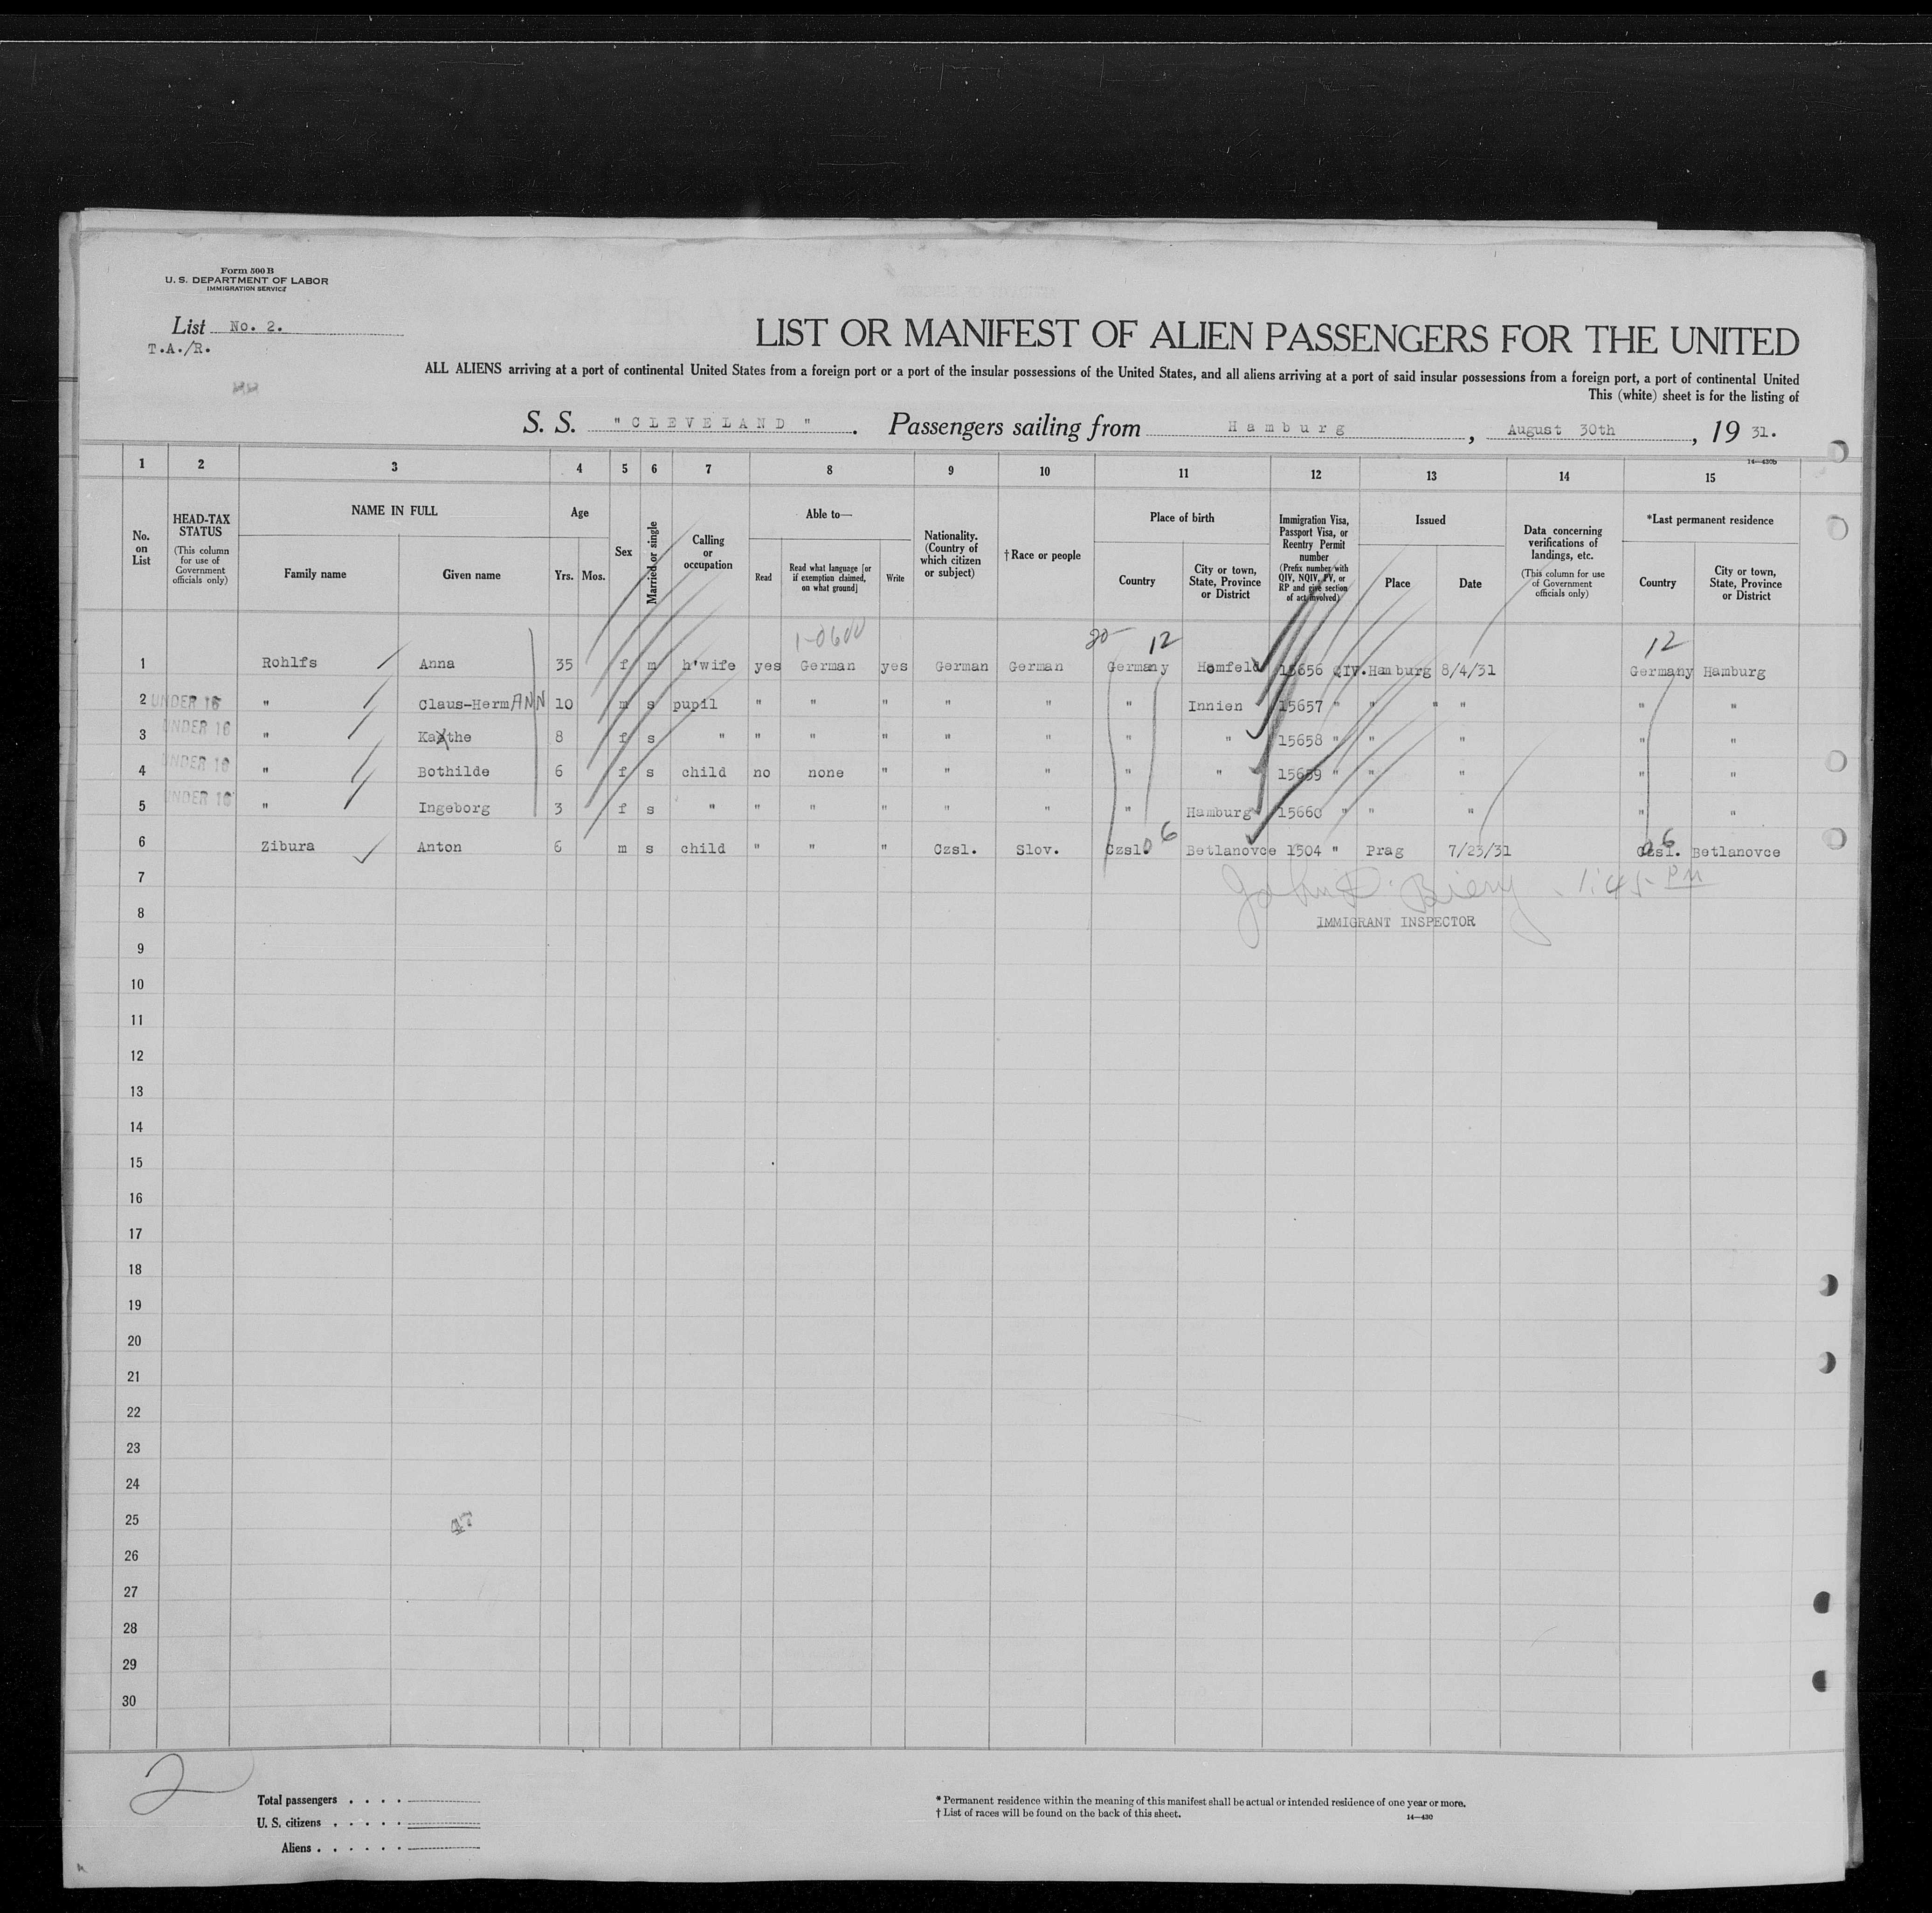 Form 500 B
U. S. DEPARTMENT OF LABOR
IMMIGRATION SERVICE
List No. 2.
T.A./R.
LIST OR MANIFEST OF ALIEN PASSENGERS FOR THE UNITED
ALL ALIENS arriving at a port of continental United States from a foreign port or a port of the insular possessions of the United States, and all aliens arriving at a port of said insular possessions from a foreign port, a port of continental United
This (white) sheet is for the listing of
S. S. "CLEVELAND". Passengers sailing from Hamburg, August 30th, 19 31.
14—430b
1 2 3 4 5 6 7 8 9 10 11 12 13 14 15
No. on List
HEAD-TAX STATUS (This column for use of Government officials only)
NAME IN FULL
Family name Given name
Age
Yrs. Mos.
Sex
Married or single
Calling or occupation
Able to—
Read Read what language [or if exemption claimed, on what ground] Write
Nationality. (Country of which citizen or subject)
†Race or people
Place of birth
Country City or town, State, Province or District
Immigration Visa, Passport Visa, or Reentry Permit number (Prefix number with QIV, NQIV, PV, or RP and give section of act involved)
Issued
Place Date
Data concerning verifications of landings, etc. (This column for use of Government officials only)
*Last permanent residence
Country City or town, State, Province or District
20 12 12
1 Rohlfs Anna 35 f m h'wife yes German yes German German Germany Homfeld 15656 QIV. Hamburg 8/4/31 Germany Hamburg
2 UNDER 16 " Claus-HermANN 10 m s pupil " " " " " " Innien 15657 " " " " " "
3 UNDER 16 " Kathe 8 f s " " " " " " " " 15658 " " " " "
4 UNDER 16 " Bothilde 6 f s child no none " " " " " 15659 " " " " "
5 UNDER 16 " Ingeborg 3 f s " " " " " " " Hamburg 15660 " " " " "
6 Zibura Anton 6 m s child " " " Czsl. Slov. Czsl. 06 Betlanovce 1504 " Prag 7/23/31 Czsl. 06 Betlanovce
7 John D. Biery 1:45 PM
8 IMMIGRANT INSPECTOR
9
10
11
12
13
14
15
16
17
18
19
20
21
22
23
24
25
26
27
28
29
30
2
Total passengers
U. S. citizens
Aliens
* Permanent residence within the meaning of this manifest shall be actual or intended residence of one year or more.
† List of races will be found on the back of this sheet.
14—430